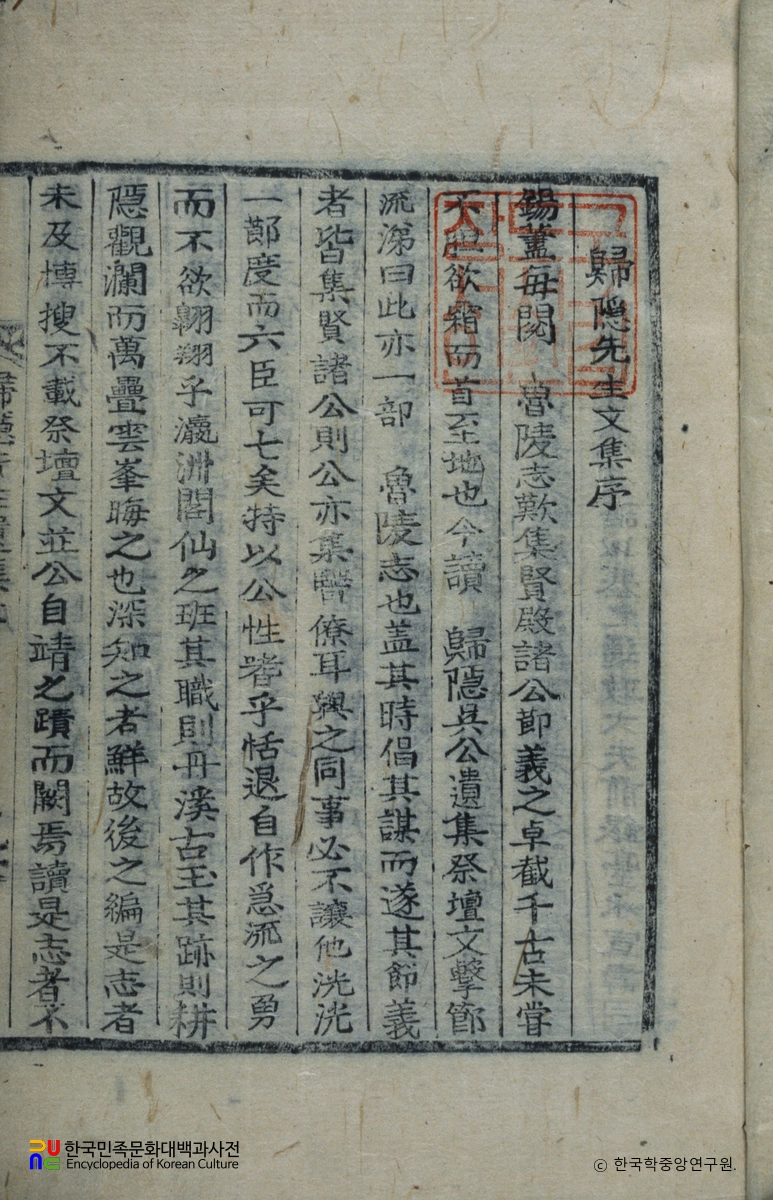 歸隠先生文集序
錫藎每閱 魯陵志歎集賢殿諸公節義之卓截千古未嘗
不膽欲霜而首至地也今讀 歸隱具公遺集祭壇文擊節
流涕曰此亦一部 魯陵志也盖其時倡其謀而遂其節義
者皆集賢諸公則公亦集賢僚耳與之同事必不讓他洸洸
一節度而六臣可七矣特以公性嗜乎恬退自作急流之勇
而不欲翺翔乎瀛洲閣仙之班其職則丹溪古玉其跡則耕
隱觀瀾而萬疊雲峯晦之也深知之者鮮故後之編是志者
未及博搜不載祭壇文並公自靖之蹟而闕焉讀是志者不
한국민족문화대백과사전
Encyclopedia of Korean Culture
© 한국학중앙연구원.